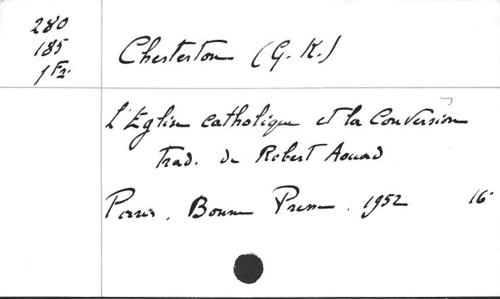 280
185
1 Fz.
Chesterton (G. K.)
L'Eglise catholique et la Conversion
trad. de Robert Aouad
Paris, Bonne Presse, 1952 16°